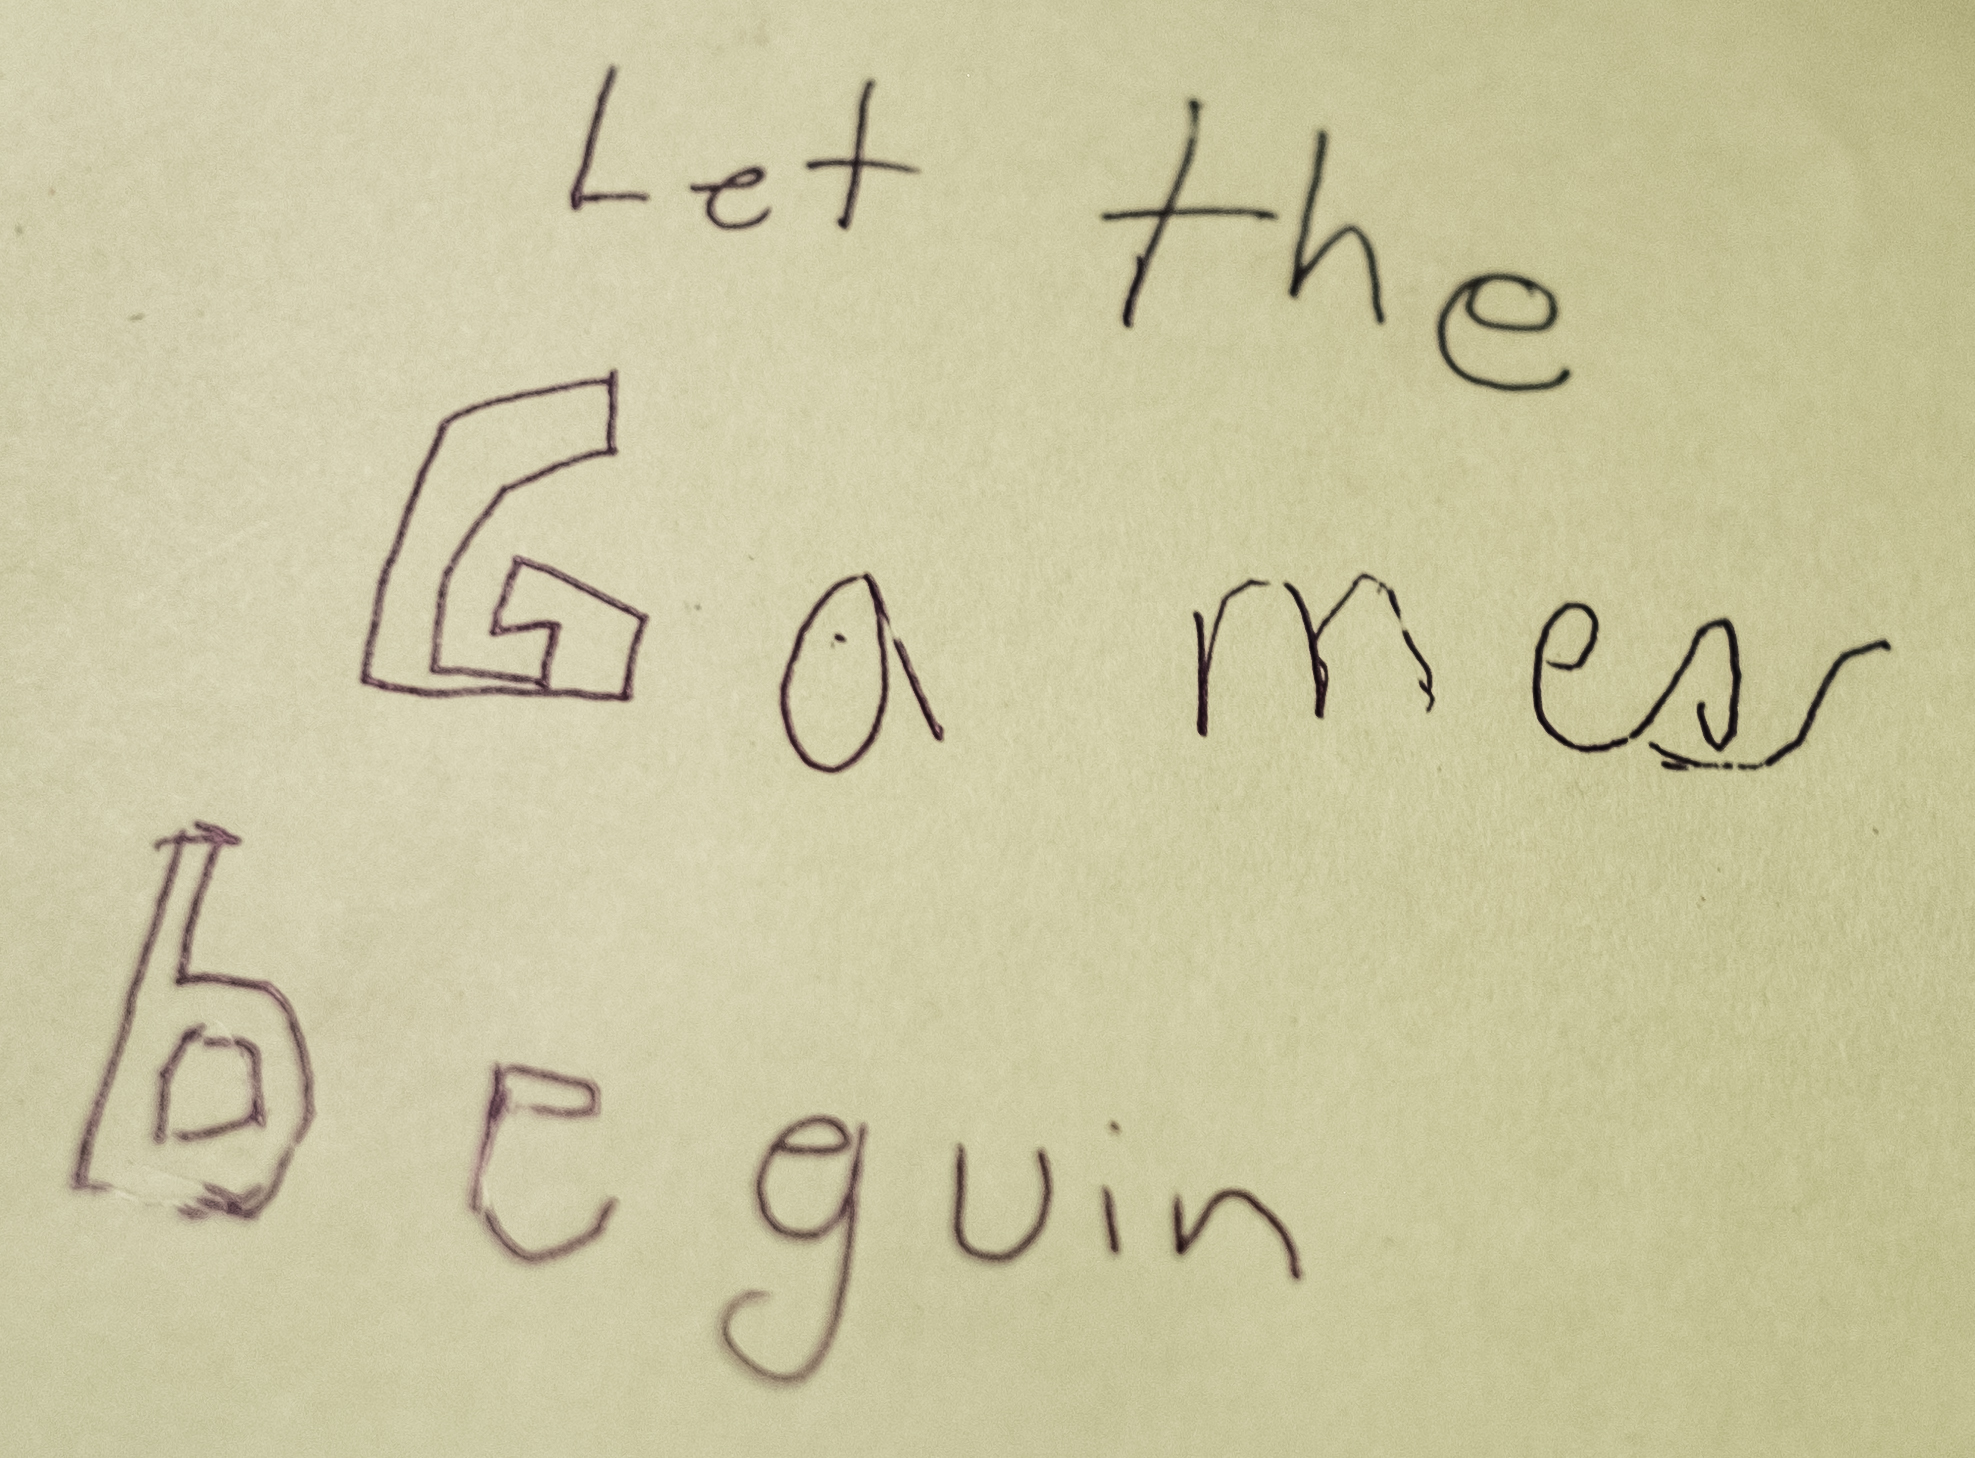 Let the
Games
beguin